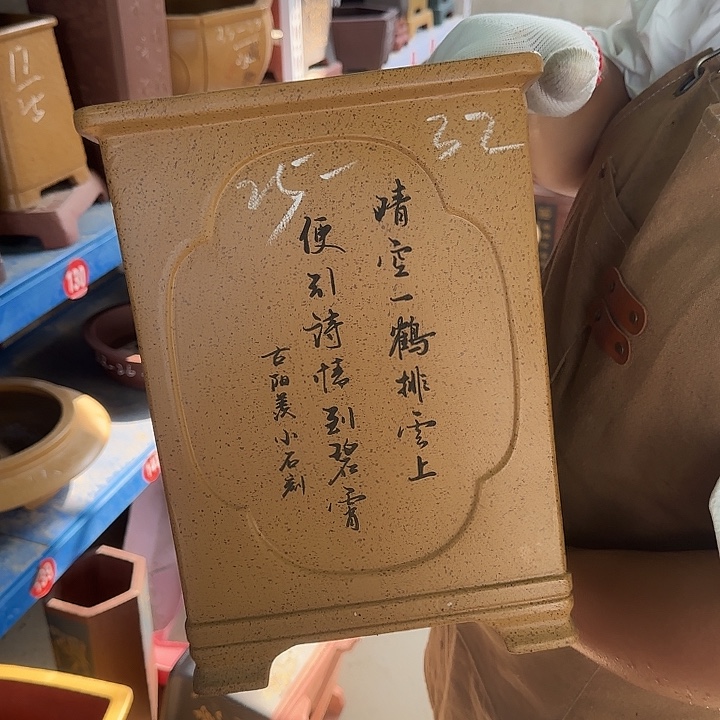 晴空一鹤排雲上
便引詩情到碧霄
古阳羨小石刻
25-
32
130